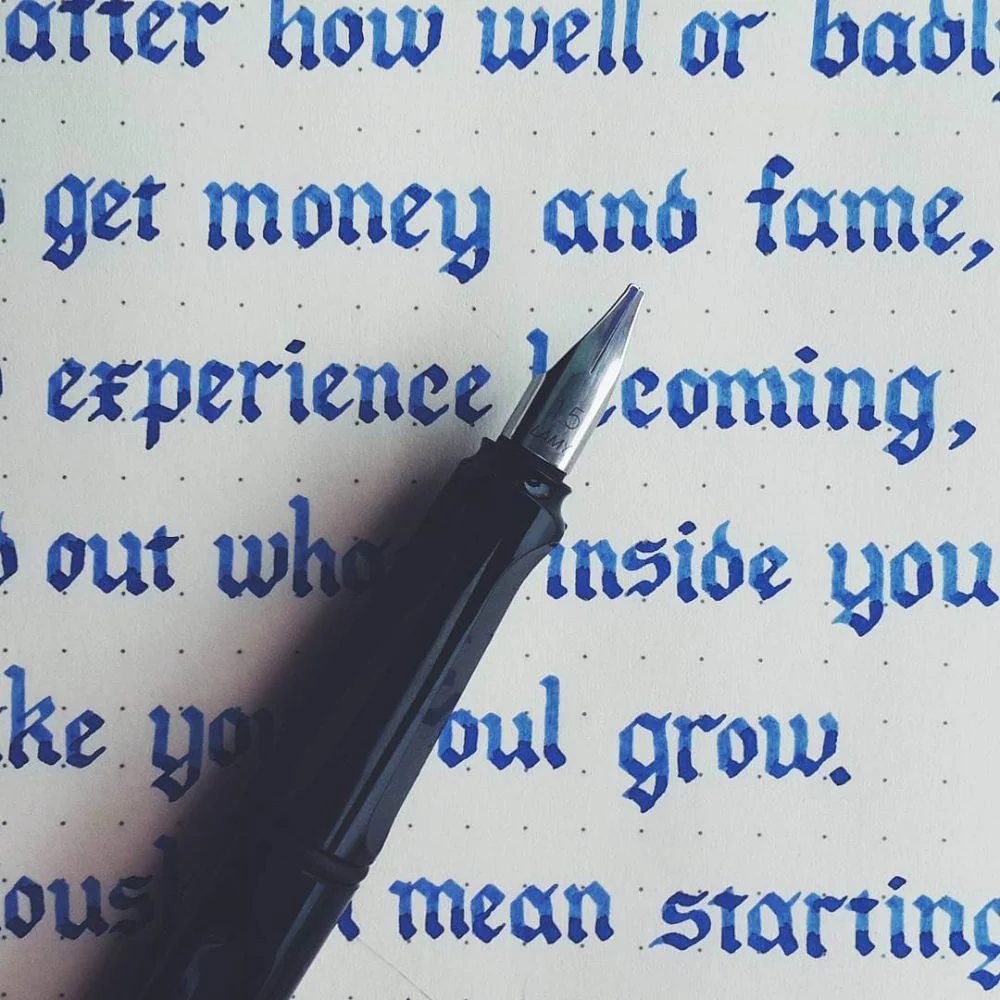 atter how well or badly
get money and fame,
experience becoming,
out wha inside you
ke you soul grow.
ously mean starting
5
LAMY